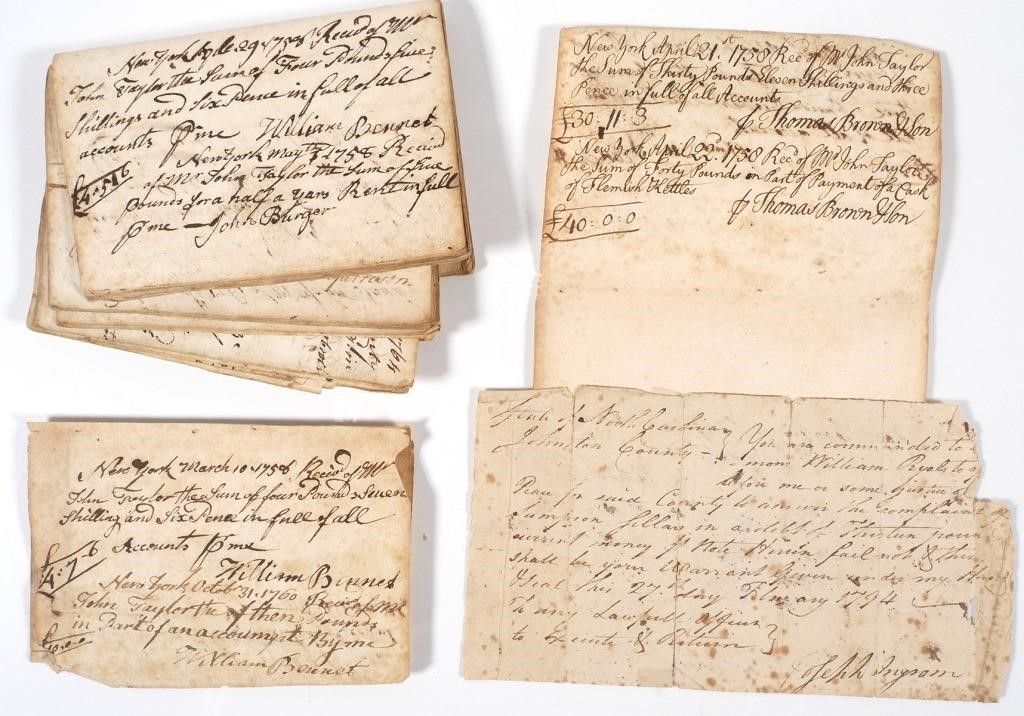 New York 29 1758 Receiv'd of Mr
John Taylor the Sum of Four Pounds Five
Shillings and Six Pence in full of all
accounts ⅌ me William Bennet
£4:5:6
New York May 1758 Receiv'd
of Mr John Taylor the Sum of Five
Pounds for a half a years Rent in full
⅌ me John Burger
New York April 21st 1758 Rec'd of Mr John Taylor
the Sum of Thirty Pounds Eleven Shillings and three
Pence in full of all Accounts
£30:11:3
⅌ Thomas Brown & Son
New York April 22d 1758 Rec'd of Mr John Taylor
the Sum of Forty Pounds on Part of Payment of a Cask
of Flemish Kettles
⅌ Thomas Brown & Son
£40:0:0
New York March 10 1758 Receiv'd of Mr
John Taylor the Sum of four Pounds Seven
Shilling and Six Pence in full of all
Accounts ⅌ me
£4:7:6
William Bennet
New York Octob 31, 1760 Receiv'd of Mr
John Taylor the of then Pounds
in Part of an accoumpt By me
£10-0-0
William Bennet
State of North Carolina
Johnston County You are commanded to
William
before me or some Justice of
Peace for said County to answer the complaint
Sampson Sellars in a debt of Thirteen poun
current money Note Herein fail not & this
shall be your Warrant Given under my Hand
& Seal this 27 day February 1794
To any Lawfull officer
to Execute & Return
Joseph Ingram